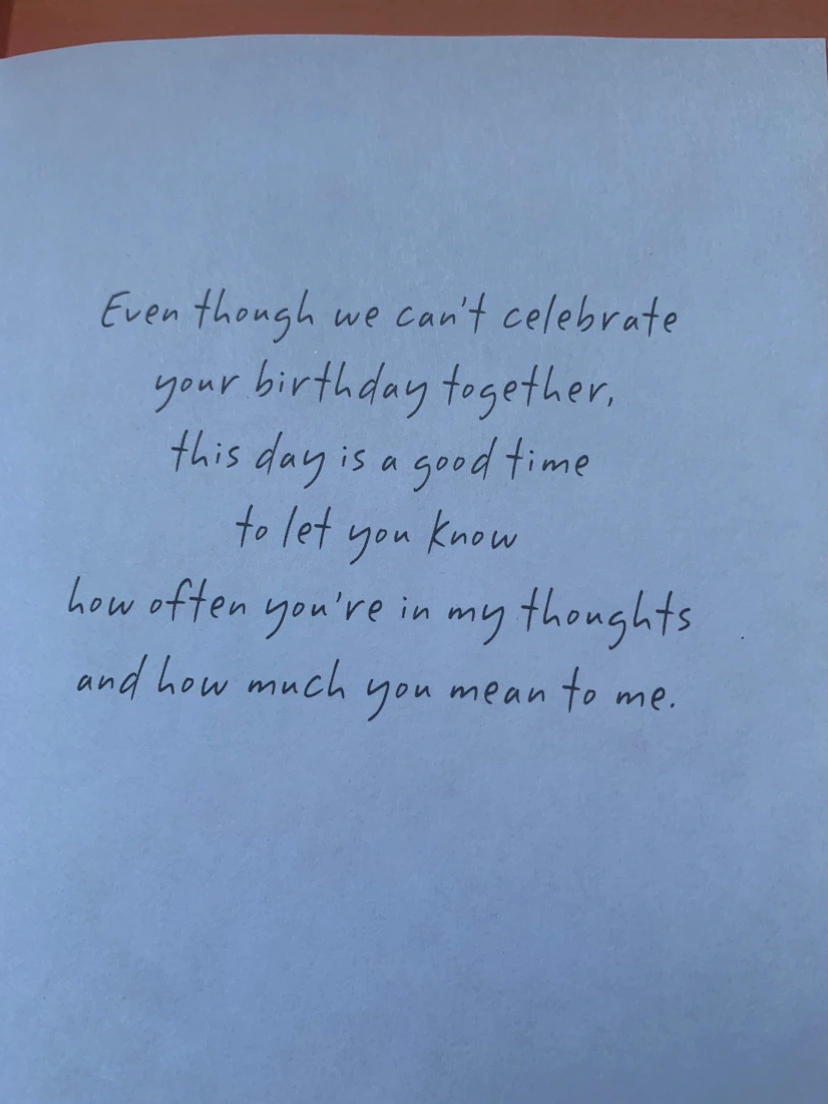 Even though we can't celebrate
your birthday together,
this day is a good time
to let you know
how often you're in my thoughts
and how much you mean to me.